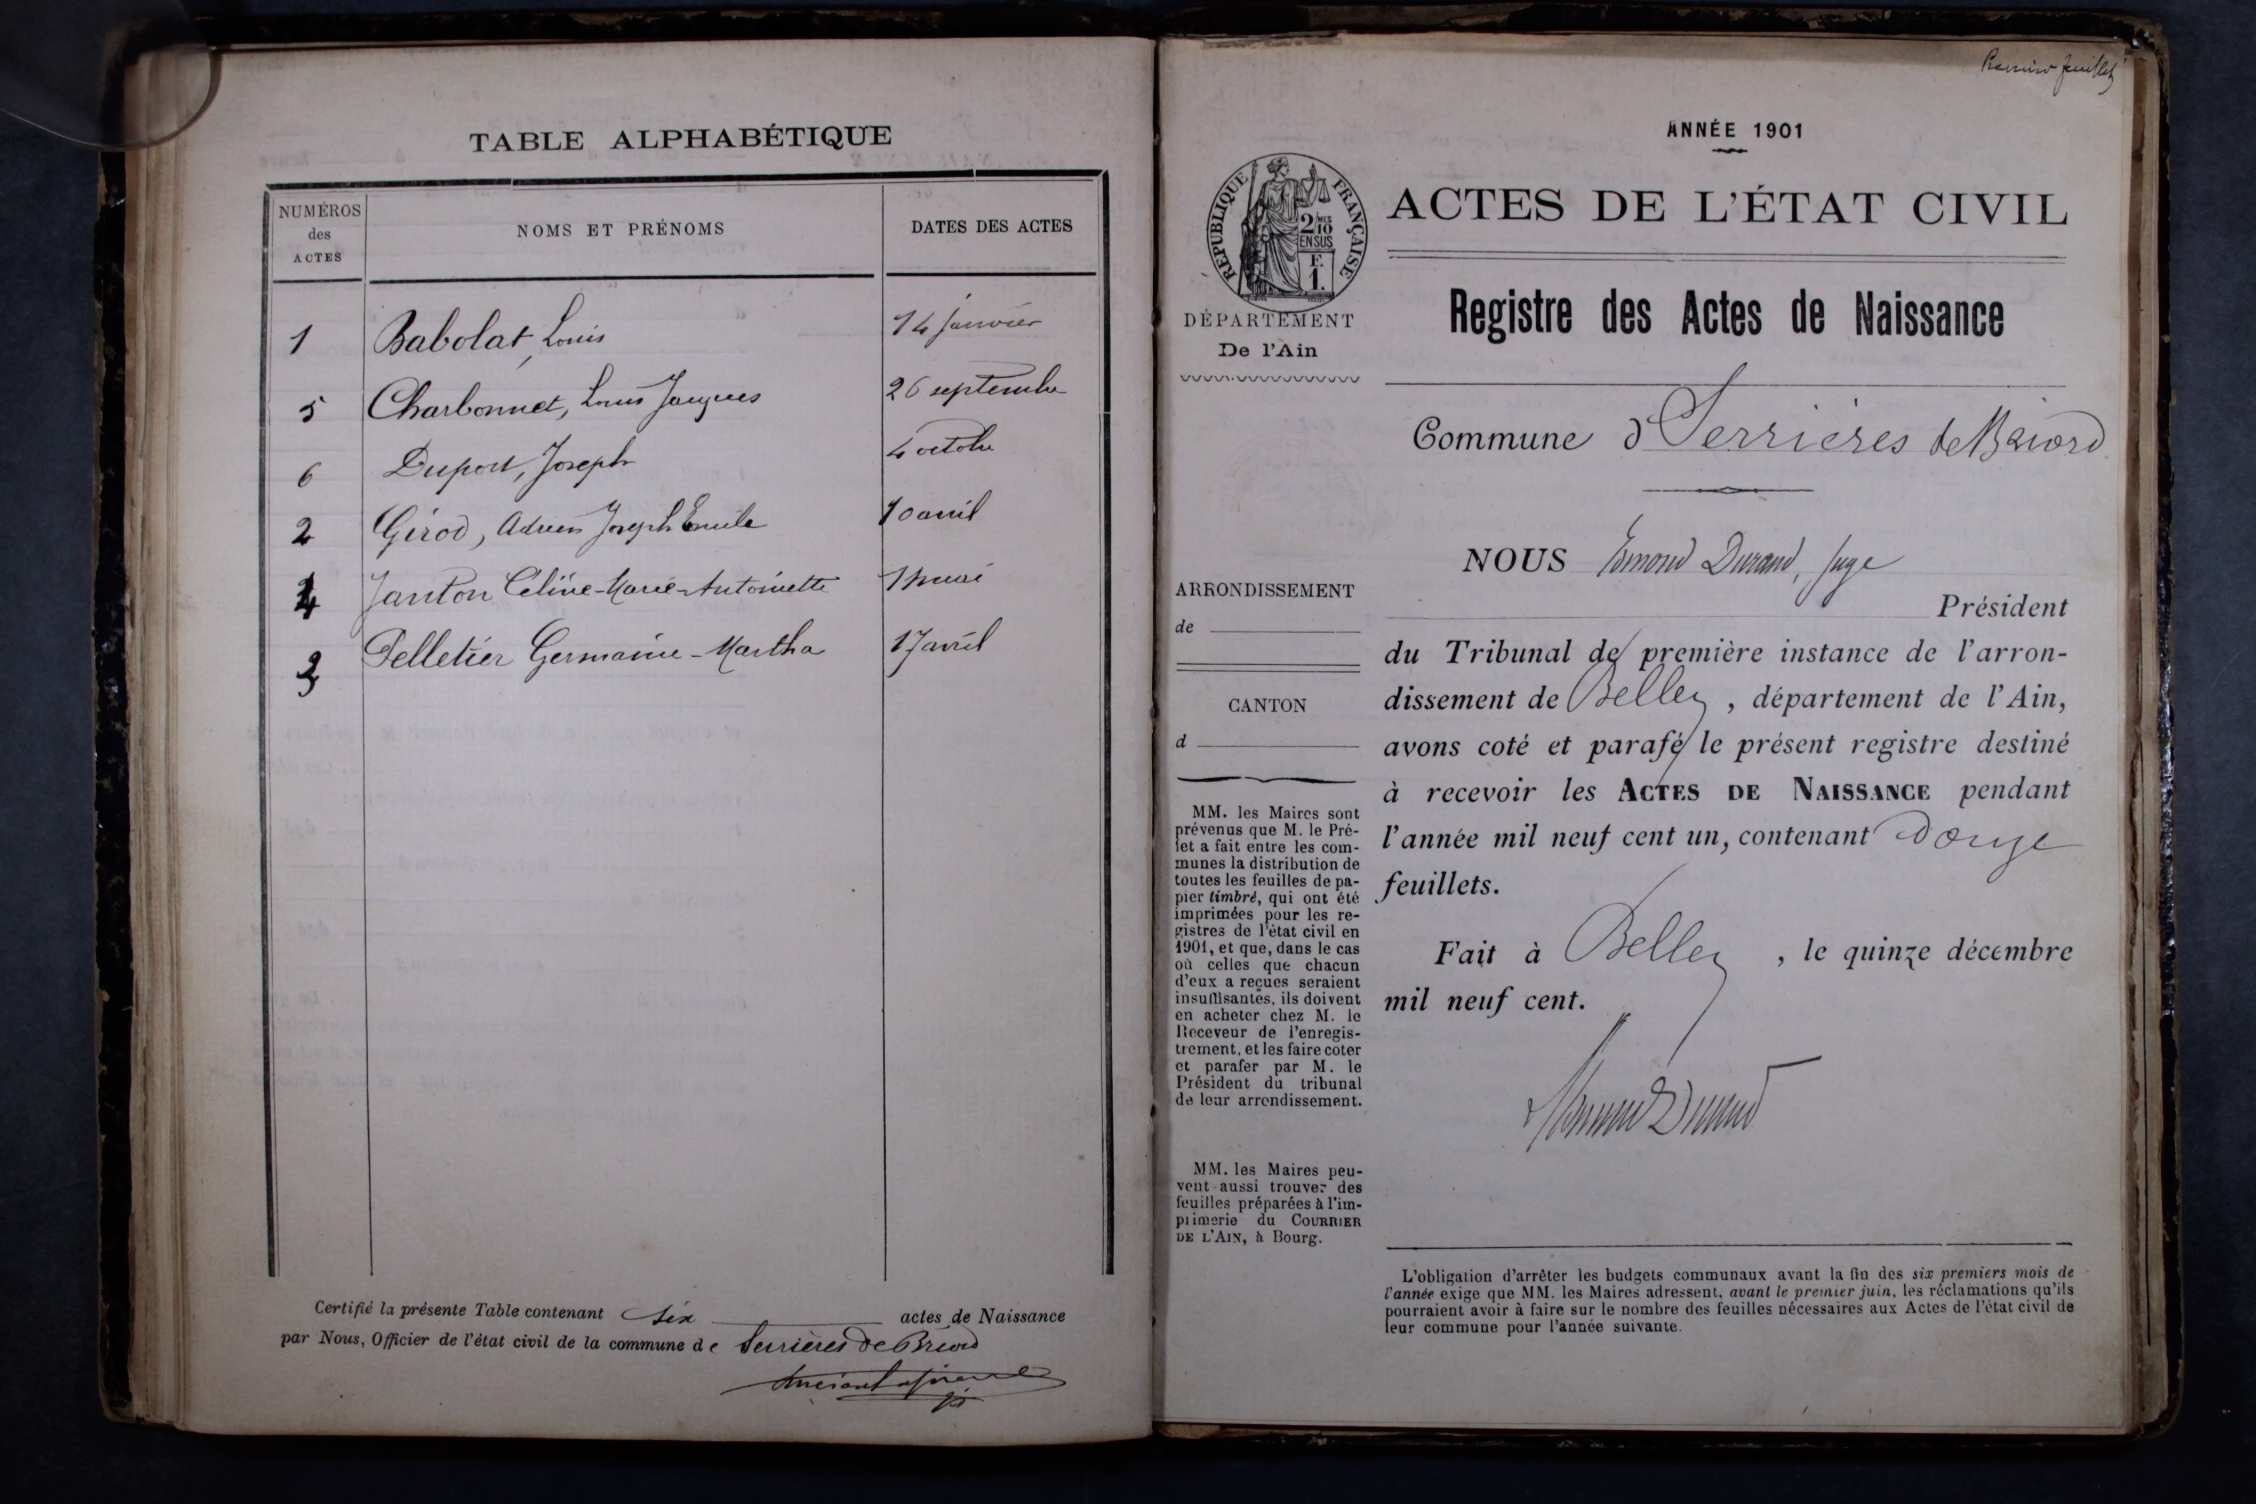 TABLE ALPHABÉTIQUE
NUMÉROS des ACTES NOMS ET PRÉNOMS DATES DES ACTES
1 Babolat, Louis 14 janvier
5 Charbonnet, Louis Jacques 26 septembre
6 Duport, Joseph 4 octobre
2 Girod, Adrien Joseph Emile 10 avril
4 Janton Céline-Marie-Antoinette 1 mai
3 Pelletier Germaine-Martha 17 avril
Certifié la présente Table contenant six actes de Naissance
par Nous, Officier de l'état civil de la commune de Serrières de Briord
Premier feuillet
ANNÉE 1901
RÉPUBLIQUE FRANÇAISE
2/10 MES
EN SUS
F.
1.
ACTES DE L'ÉTAT CIVIL
DÉPARTEMENT
De l'Ain
Registre des Actes de Naissance
Commune d Serrières de Briord
ARRONDISSEMENT
de
CANTON
d
MM. les Maires sont
prévenus que M. le Pré-
fet a fait entre les com-
munes la distribution de
toutes les feuilles de pa-
pier timbré, qui ont été
imprimées pour les re-
gistres de l'état civil en
1901, et que, dans le cas
où celles que chacun
d'eux a reçues seraient
insuffisantes, ils doivent
en acheter chez M. le
Receveur de l'enregis-
trement, et les faire coter
et parafer par M. le
Président du tribunal
de leur arrondissement.
MM. les Maires peu-
vent aussi trouver des
feuilles préparées à l'im-
primerie du COURRIER
DE L'AIN, à Bourg.
NOUS Edmond Durand, Juge
Président
du Tribunal de première instance de l'arron-
dissement de Belley, département de l'Ain,
avons coté et parafé le présent registre destiné
à recevoir les ACTES DE NAISSANCE pendant
l'année mil neuf cent un, contenant douze
feuillets.
Fait à Belley, le quinze décembre
mil neuf cent.
L'obligation d'arrêter les budgets communaux avant la fin des six premiers mois de
l'année exige que MM. les Maires adressent, avant le premier juin, les réclamations qu'ils
pourraient avoir à faire sur le nombre des feuilles nécessaires aux Actes de l'état civil de
leur commune pour l'année suivante.